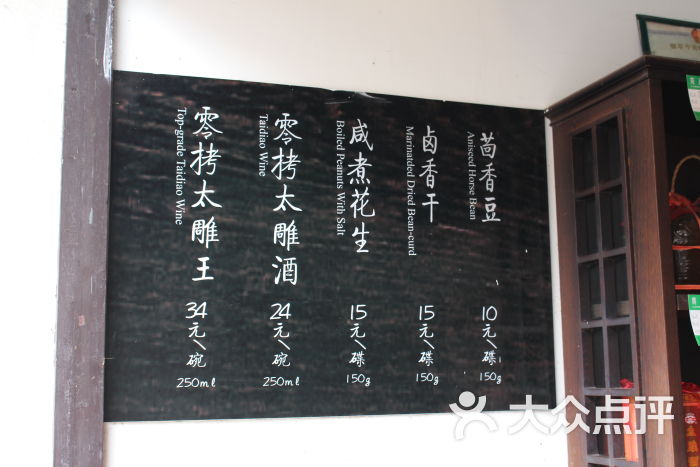 茴香豆
Aniseed Horse Bean
10元/碟
150g
卤香干
Marinatded Dried Bean-curd
15元/碟
150g
咸煮花生
Boiled Peanuts With Salt
15元/碟
150g
零拷太雕酒
Taidiao Wine
24元/碗
250ml
零拷太雕王
Top-grade Taidiao Wine
34元/碗
250ml
大众点评